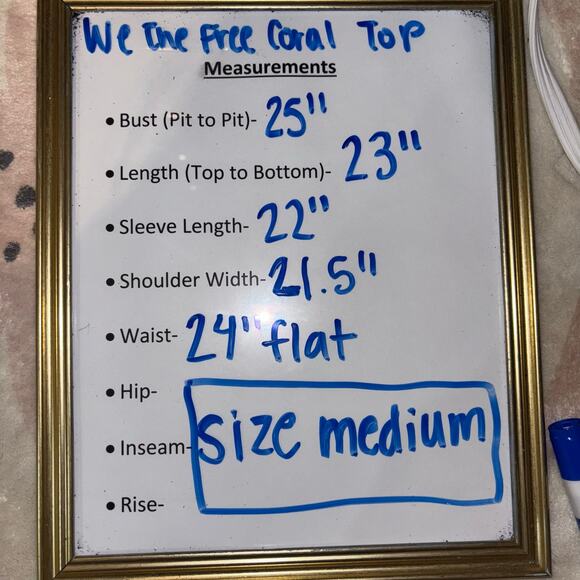 We The Free Coral Top
Measurements
• Bust (Pit to Pit)- 25"
• Length (Top to Bottom)- 23"
• Sleeve Length- 22"
• Shoulder Width- 21.5"
• Waist- 24" flat
• Hip-
• Inseam-
size medium
• Rise-